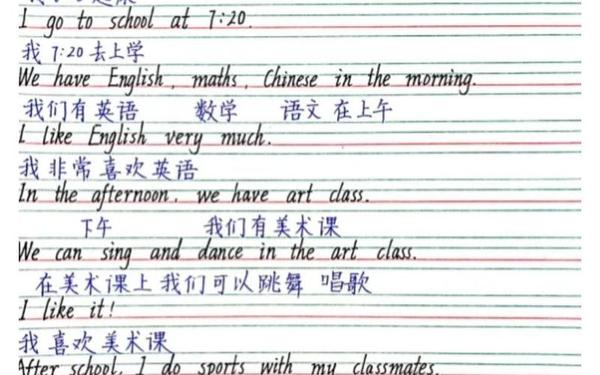 I go to school at 7:20.
我 7:20 去上学
We have English, maths, Chinese in the morning.
我们有英语 数学 语文 在上午
I like English very much.
我 非常 喜欢 英语
In the afternoon, we have art class.
下午 我们有美术课
We can sing and dance in the art class.
在美术课上 我们可以跳舞 唱歌
I like it!
我 喜欢 美术课
After school, I do sports with my classmates.